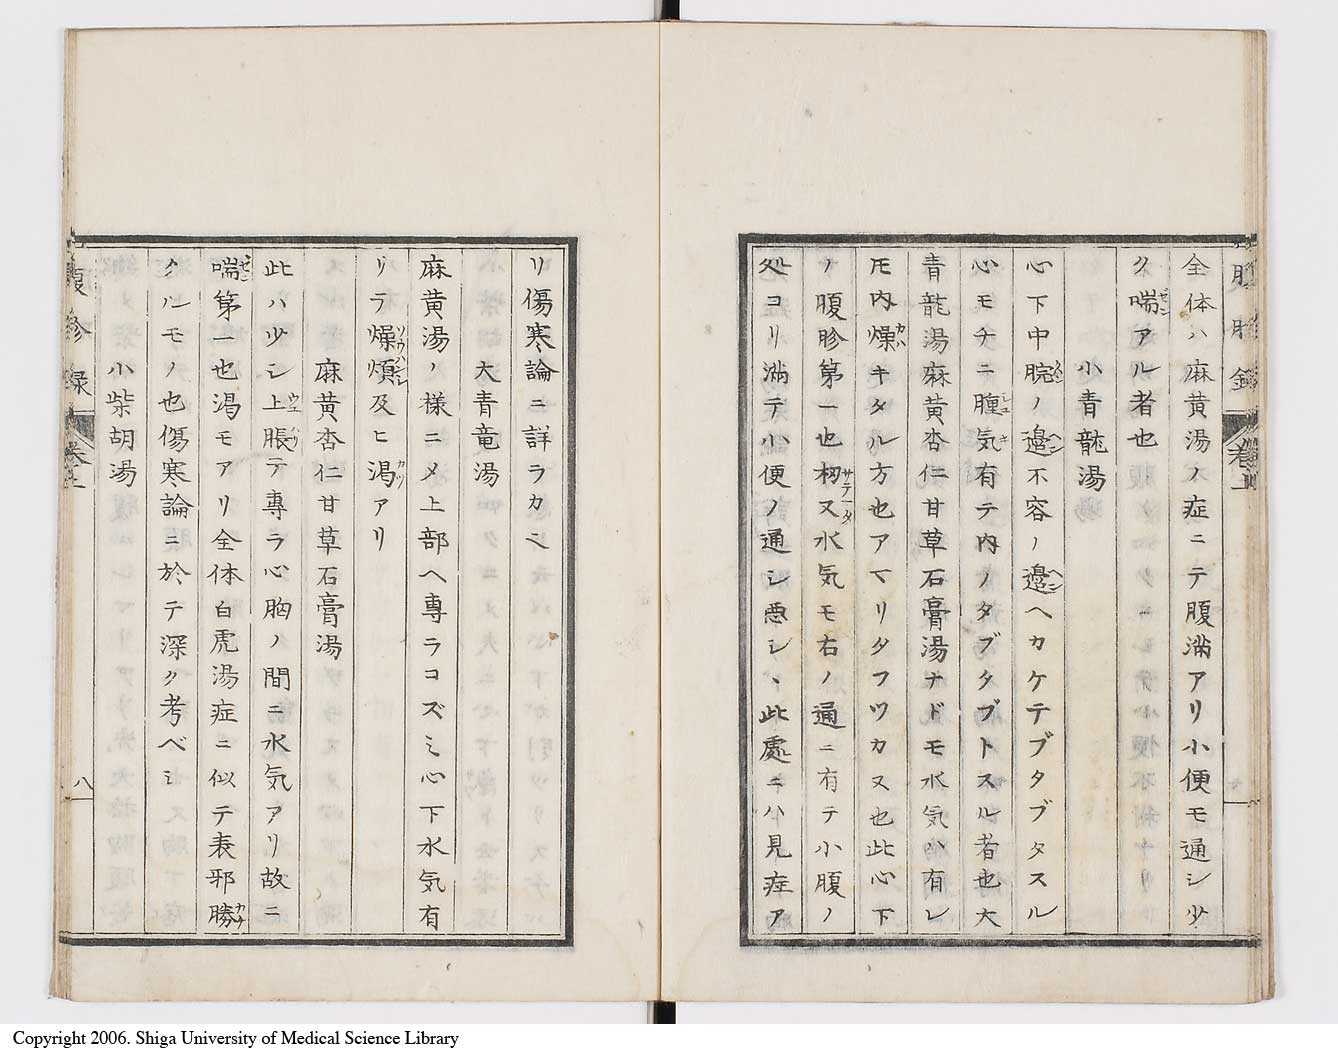 全体ハ麻黄湯ノ症ニテ腹満アリ小便モ通シ少
ク喘アル者也
小青龍湯
心下中脘ノ邉不容ノ邉ヘカケテブタブタスル
心モチニ腫気有テ内ノタブタブトスル者也大
青龍湯麻黄杏仁甘草石膏湯ナドモ水気ハ有レ
𪜈内燥キタル方也アマリタフツカヌ也此心下
ノ腹診第一也扨又水気モ右ノ通ニ有テ小腹ノ
処コリ満テ小便ノ通シ悪シ丶此處ニハ見症ア
リ傷寒論ニ詳ラカミ
大青竜湯
麻黄湯ノ様ニメ上部ヘ専ラコズミ心下水気有
リテ燥煩及ヒ渇アリ
麻黄杏仁甘草石膏湯
此ハ少シ上脹テ專ラ心胸ノ間ニ水気アリ故ニ
喘第一也渇モアリ全体白虎湯症ニ似テ表邪勝
タルモノ也傷寒論ニ於テ深ク考ベシ
小柴胡湯
腹診録
巻上
八
Copyright 2006. Shiga University of Medical Science Library